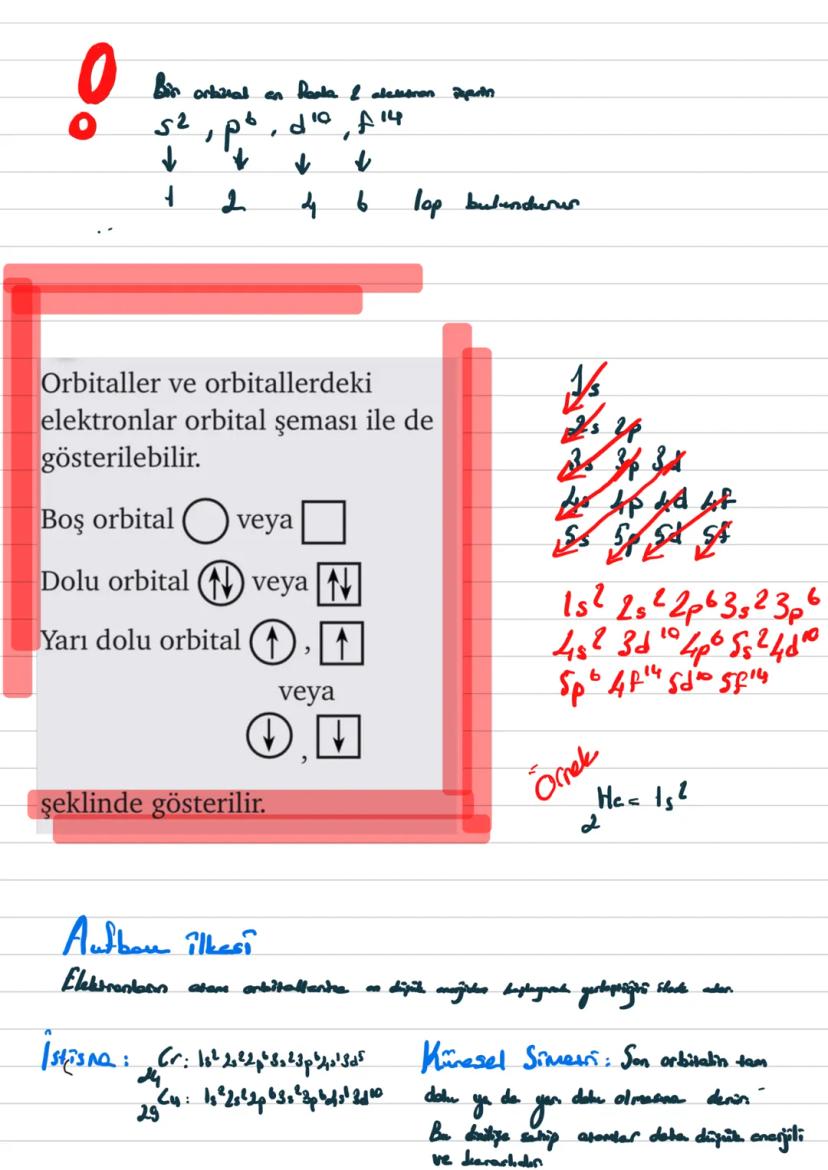 Bir orbital en fazla 2 elektron taşır
s², p⁶, d¹⁰, f¹⁴
↓ ↓ ↓ ↓
1 2 4 6 lop bulundurur
Orbitaller ve orbitallerdeki
elektronlar orbital şeması ile de
gösterilebilir.
Boş orbital veya
Dolu orbital veya
Yarı dolu orbital ,
veya
,
şeklinde gösterilir.
1s
2s 2p
3s 3p 3d
4s 4p 4d 4f
5s 5p 5d 5f
1s² 2s² 2p⁶ 3s² 3p⁶
4s² 3d¹⁰ 4p⁶ 5s² 4d¹⁰
5p⁶ 4f¹⁴ 5d¹⁰ 5f¹⁴
Örnek
₂He = 1s²
Aufbau ilkesi
Elektronların atom orbitallerine en düşük enerjiden başlayarak yerleştiğini ifade eder.
İstisna : ₂₄Cr: 1s² 2s² 2p⁶ 3s² 3p⁶ 4s¹ 3d⁵
₂₉Cu: 1s² 2s² 2p⁶ 3s² 3p⁶ 4s¹ 3d¹⁰
Küresel Simetri : Son orbitalin tam
dolu ya da yarı dolu olmasına denir.
Bu özelliğe sahip atomlar daha düşük enerjili
ve kararlıdır